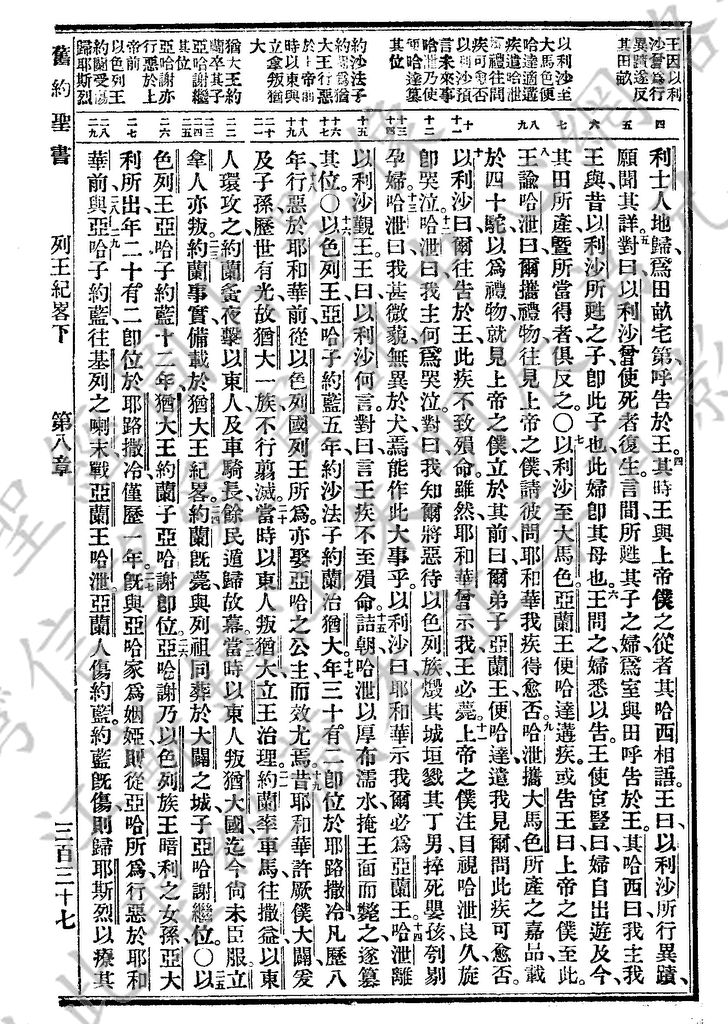 王因以利
沙曾爲行
異蹟遂反
其田畝
以利沙至
大馬色便
哈達適遘
疾遣哈泄
攜禮往問
疾可愈否
以利沙預
言未來事
哈泄乃使
便哈達薨
其位
約沙法子
約蘭爲猶
大王行惡
於上帝前
時以東與
立拿叛猶
大
猶大王約
蘭卒其子
亞哈謝繼
其位
亞哈謝亦
行惡於上
帝前
以色列王
約藍受傷
歸耶斯烈
四
五
六
七
八
九
十
十一
十二
十三
十四
十五
十六
十七
十八
十九
二十
二一
二二
二三
二四
二五
二六
二七
二八
二九
利士人地歸爲田畝宅第呼告於王四其時王與上帝僕之從者其哈西相語王曰以利沙所行異蹟
願聞其詳五對曰以利沙曾使死者復生言間所甦其子之婦爲室與田呼告於王其哈西曰我主我
王與昔以利沙所甦之子卽此子也此婦卽其母也六王問之婦悉以告王使宦豎曰婦自出遊及今
其田所產曁所當得者俱反之〇七以利沙至大馬色亞蘭王便哈達遘疾或告王曰上帝之僕至此
八王諭哈泄曰爾攜禮物往見上帝之僕請彼問耶和華我疾得愈否九哈泄攜大馬色所產之嘉品載
於四十駝以爲禮物就見上帝之僕立於其前曰爾弟子亞蘭王便哈達遣我見爾問此疾可愈否
十以利沙曰爾往告於王此疾不致殞命雖然耶和華曾示我王必薨十一上帝之僕注目視哈泄良久旋
卽哭泣十二哈泄曰我主何爲哭泣對曰我知爾將惡待以色列族燬其城垣戮其丁男捽死嬰孩刳剔
孕婦十三哈泄曰我甚微藐無異於犬焉能作此大事乎以利沙曰耶和華示我爾必爲亞蘭王十四哈泄離
以利沙覲王王曰以利沙何言對曰言王疾不至殞命十五詰朝哈泄以厚布濡水掩王面而斃之遂篡
其位〇十六以色列王亞哈子約藍五年約沙法子約蘭治猶大十七年三十有二卽位於耶路撒冷凡歷八
年十八行惡於耶和華前從以色列國列王所爲亦娶亞哈之公主而效尤焉十九昔耶和華許厥僕大闢爰
及子孫歷世有光故猶大一族不行翦滅二十當時以東人叛猶大立王治理二一約蘭率軍馬往撒益以東
人環攻之約蘭夤夜擊以東人及車騎長餘民遁歸故幕二二當時以東人叛猶大國迄今尙未臣服立
拿人亦叛二三約蘭事實備載於猶大王紀畧二四約蘭旣薨與列祖同葬於大闢之城子亞哈謝繼位〇二五以
色列王亞哈子約藍十二年猶大王約蘭子亞哈謝卽位二六亞哈謝乃以色列族王暗利之女孫亞大
利所出年二十有二卽位於耶路撒冷僅歷一年二七旣與亞哈家爲姻婭則從亞哈所爲行惡於耶和
華前二八與亞哈子約藍往基列之喇末戰亞蘭王哈泄亞蘭人傷約藍二九約藍旣傷則歸耶斯烈以療其
舊約聖書　列王紀畧下　第八章　三百三十七